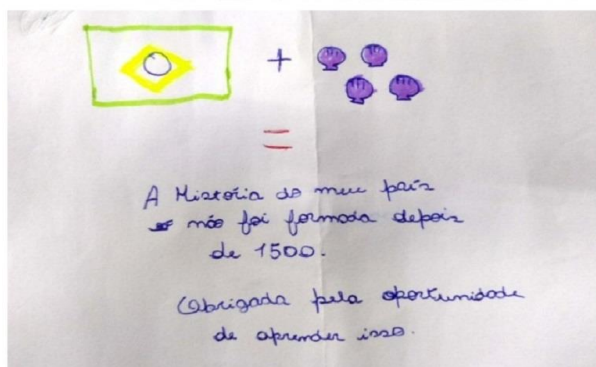 +
=
A História do meu país
não foi formada depois
de 1500.
Obrigada pela oportunidade
de aprender isso.